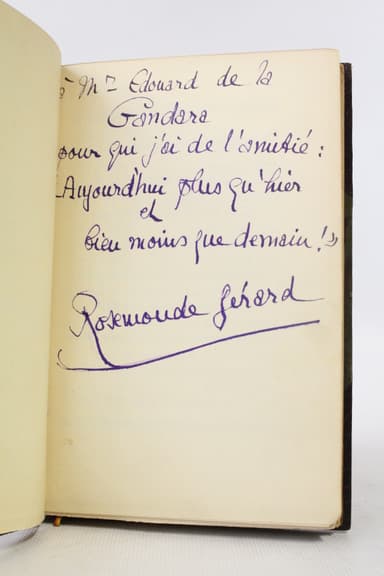 à Mr Edouard de la
Gandara
pour qui j'ai de l'amitié :
"Aujourd'hui plus qu'hier
et
bien moins que demain !"
Rosemonde Gérard